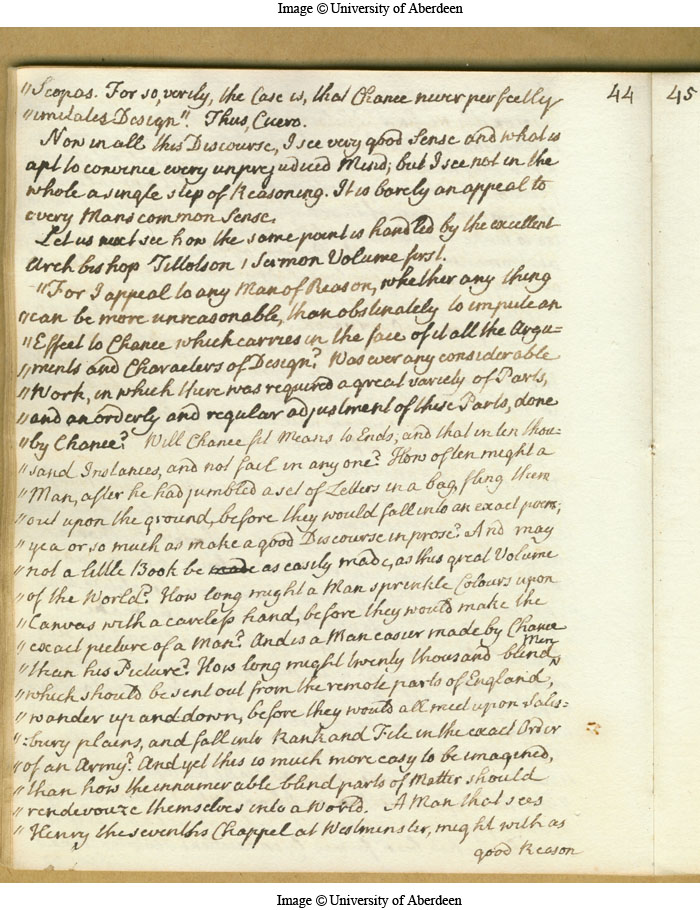 Image © University of Aberdeen
44 45
"Scopas. For so, verily, the Case is, that Chance never perfectly
"imitates Design". Thus, Cicero.
Now in all this Discourse, I see very good Sense and what is
apt to convince every unprejudiced Mind; but I see not in the
whole a single step of Reasoning. It is barely an appeal to
every Mans common Sense.
Let us next see how the same point is handled by the excellent
Archbishop Tillotson 1 Sermon Volume first.
"For I appeal to any Man of Reason, whether any thing
"can be more unreasonable, than obstinately to impute an
"Effect to Chance which carries in the face of it all the Argu=
"ments and Characters of Design? Was ever any considerable
"Work, in which there was required a great variety of Parts,
"and an orderly and regular adjustment of these Parts, done
"by Chance? Will Chance fit Means to Ends, and that in ten thou=
"sand Instances, and not fail in any one? How often might a
"Man, after he had jumbled a set of Letters in a bag, fling them
"out upon the ground, before they would fall into an exact poem;
"yea or so much as make a good Discourse in prose? And may
"not a little Book be made as easily made, as this great Volume
"of the World? How long might a Man sprinkle Colours upon
"Canvas with a careless hand, before they would make the
"exact picture of a Man? And is a Man easier made by Chance
"than his Picture? How long might twenty thousand blind Men,
"which should be sent out from the remote parts of England,
"wander up and down, before they would all meet upon Salis=
"=bury plains, and fall into Rank and File in the exact Order
"of an Army? And yet this is much more easy to be imagined,
"than how the innumerable blind parts of Matter should
"rendevouze themselves into a World. A Man that sees
"Henry the sevenths Chappel at Westminster, might with as
good Reason
Image © University of Aberdeen